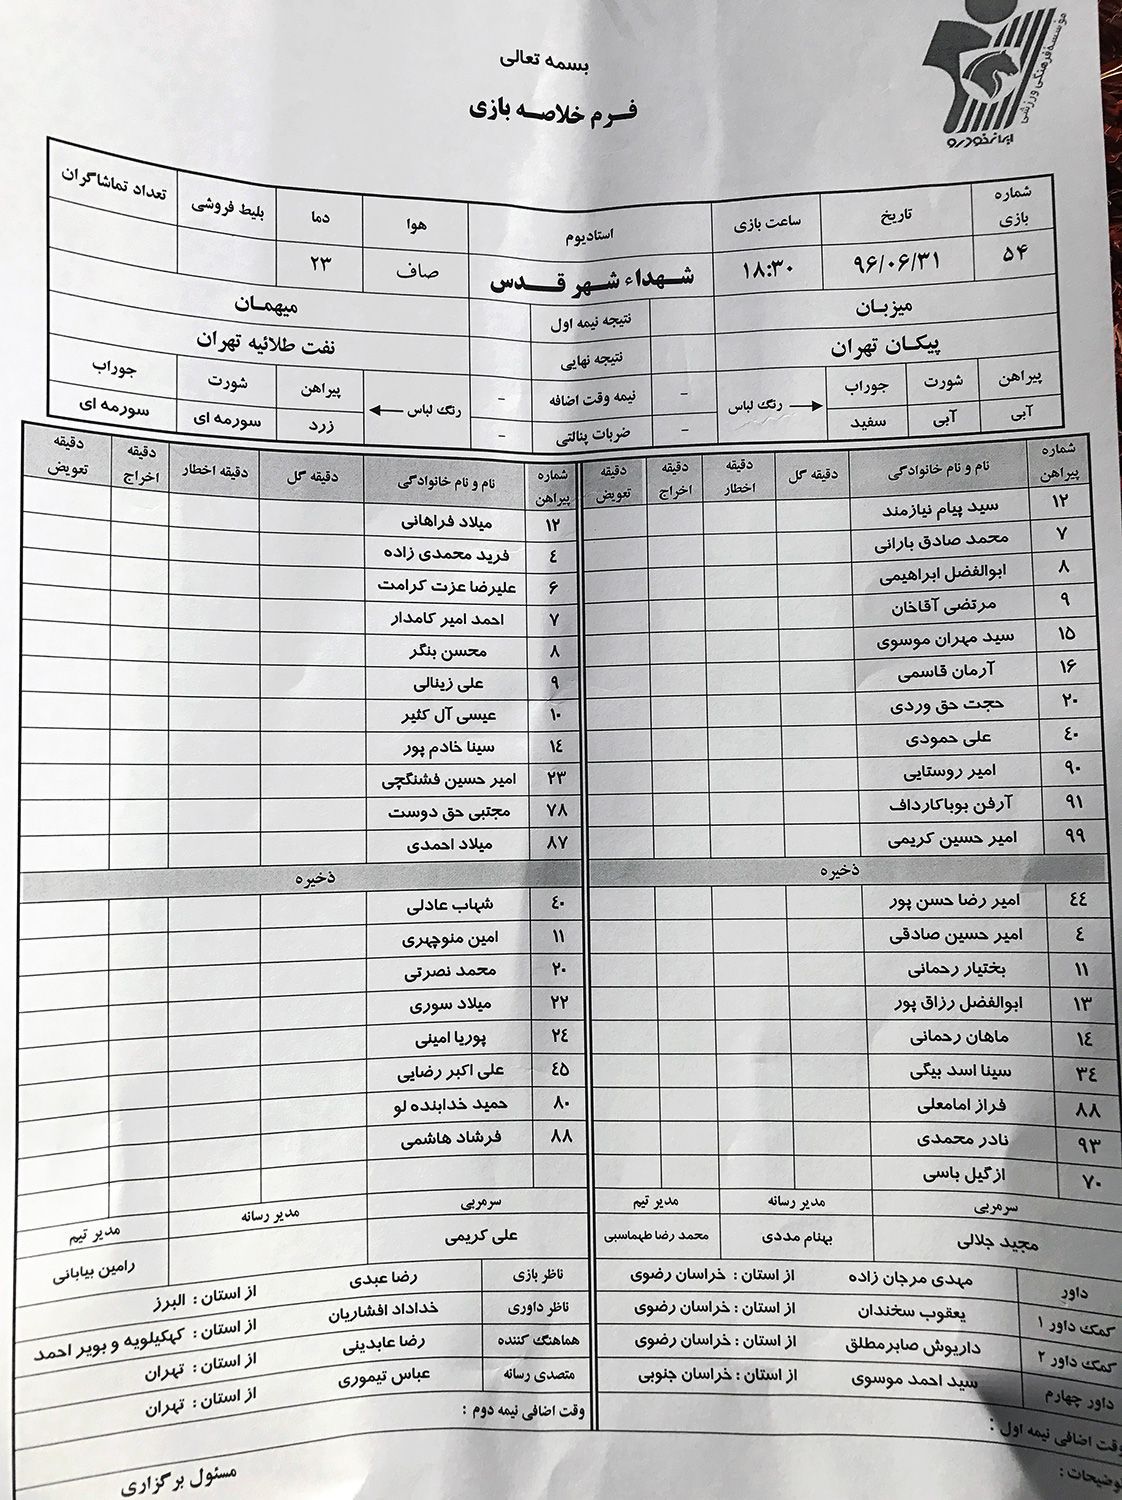 موسسه فرهنگی ورزشی
ایران خودرو
بسمه تعالی
فرم خلاصه بازی
شماره بازی تاریخ ساعت بازی استادیوم هوا دما بلیط فروشی تعداد تماشاگران
۵۴ ۹۶/۰۶/۳۱ ۱۸:۳۰ شهداء شهر قدس صاف ۲۳
میزبان نتیجه نیمه اول میهمان
پیکان تهران نتیجه نهایی نفت طلائیه تهران
پیراهن شورت جوراب رنگ لباس - نیمه وقت اضافه - رنگ لباس پیراهن شورت جوراب
آبی آبی سفید - ضربات پنالتی - زرد سورمه ای سورمه ای
شماره پیراهن نام و نام خانوادگی دقیقه گل دقیقه اخطار دقیقه اخراج دقیقه تعویض شماره پیراهن نام و نام خانوادگی دقیقه گل دقیقه اخطار دقیقه اخراج دقیقه تعویض
۱۲ سید پیام نیازمند ۱۲ میلاد فراهانی
۷ محمد صادق بارانی ۴ فرید محمدی زاده
۸ ابوالفضل ابراهیمی ۶ علیرضا عزت کرامت
۹ مرتضی آقاخان ۷ احمد امیر کامدار
۱۵ سید مهران موسوی ۸ محسن بنگر
۱۶ آرمان قاسمی ۹ علی زینالی
۲۰ حجت حق وردی ۱۰ عیسی آل کثیر
۴۰ علی حمودی ۱۴ سینا خادم پور
۹۰ امیر روستایی ۲۳ امیر حسین فشنگچی
۹۱ آرفن بوباکارداف ۷۸ مجتبی حق دوست
۹۹ امیر حسین کریمی ۸۷ میلاد احمدی
ذخیره ذخیره
۴۴ امیر رضا حسن پور ۴۰ شهاب عادلی
۴ امیر حسین صادقی ۱۱ امین منوچهری
۱۱ بختیار رحمانی ۲۰ محمد نصرتی
۱۳ ابوالفضل رزاق پور ۲۲ میلاد سوری
۱۴ ماهان رحمانی ۲۴ پوریا امینی
۳۴ سینا اسد بیگی ۴۵ علی اکبر رضایی
۸۸ فراز امامعلی ۸۰ حمید خدابنده لو
۹۳ نادر محمدی ۸۸ فرشاد هاشمی
۷۰ ازگیل باسی
سرمربی مدیر رسانه مدیر تیم سرمربی مدیر رسانه مدیر تیم
مجید جلالی بهنام مددی محمد رضا طهماسبی علی کریمی رامین بیابانی
داور مهدی مرجان زاده از استان : خراسان رضوی ناظر بازی رضا عبدی از استان : البرز
کمک داور ۱ یعقوب سخندان از استان : خراسان رضوی ناظر داوری خداداد افشاریان از استان : کهکیلویه و بویر احمد
کمک داور ۲ داریوش صابرمطلق از استان : خراسان رضوی هماهنگ کننده رضا عابدینی از استان : تهران
داور چهارم سید احمد موسوی از استان : خراسان جنوبی متصدی رسانه عباس تیموری از استان : تهران
وقت اضافی نیمه اول : وقت اضافی نیمه دوم :
توضیحات :
مسئول برگزاری